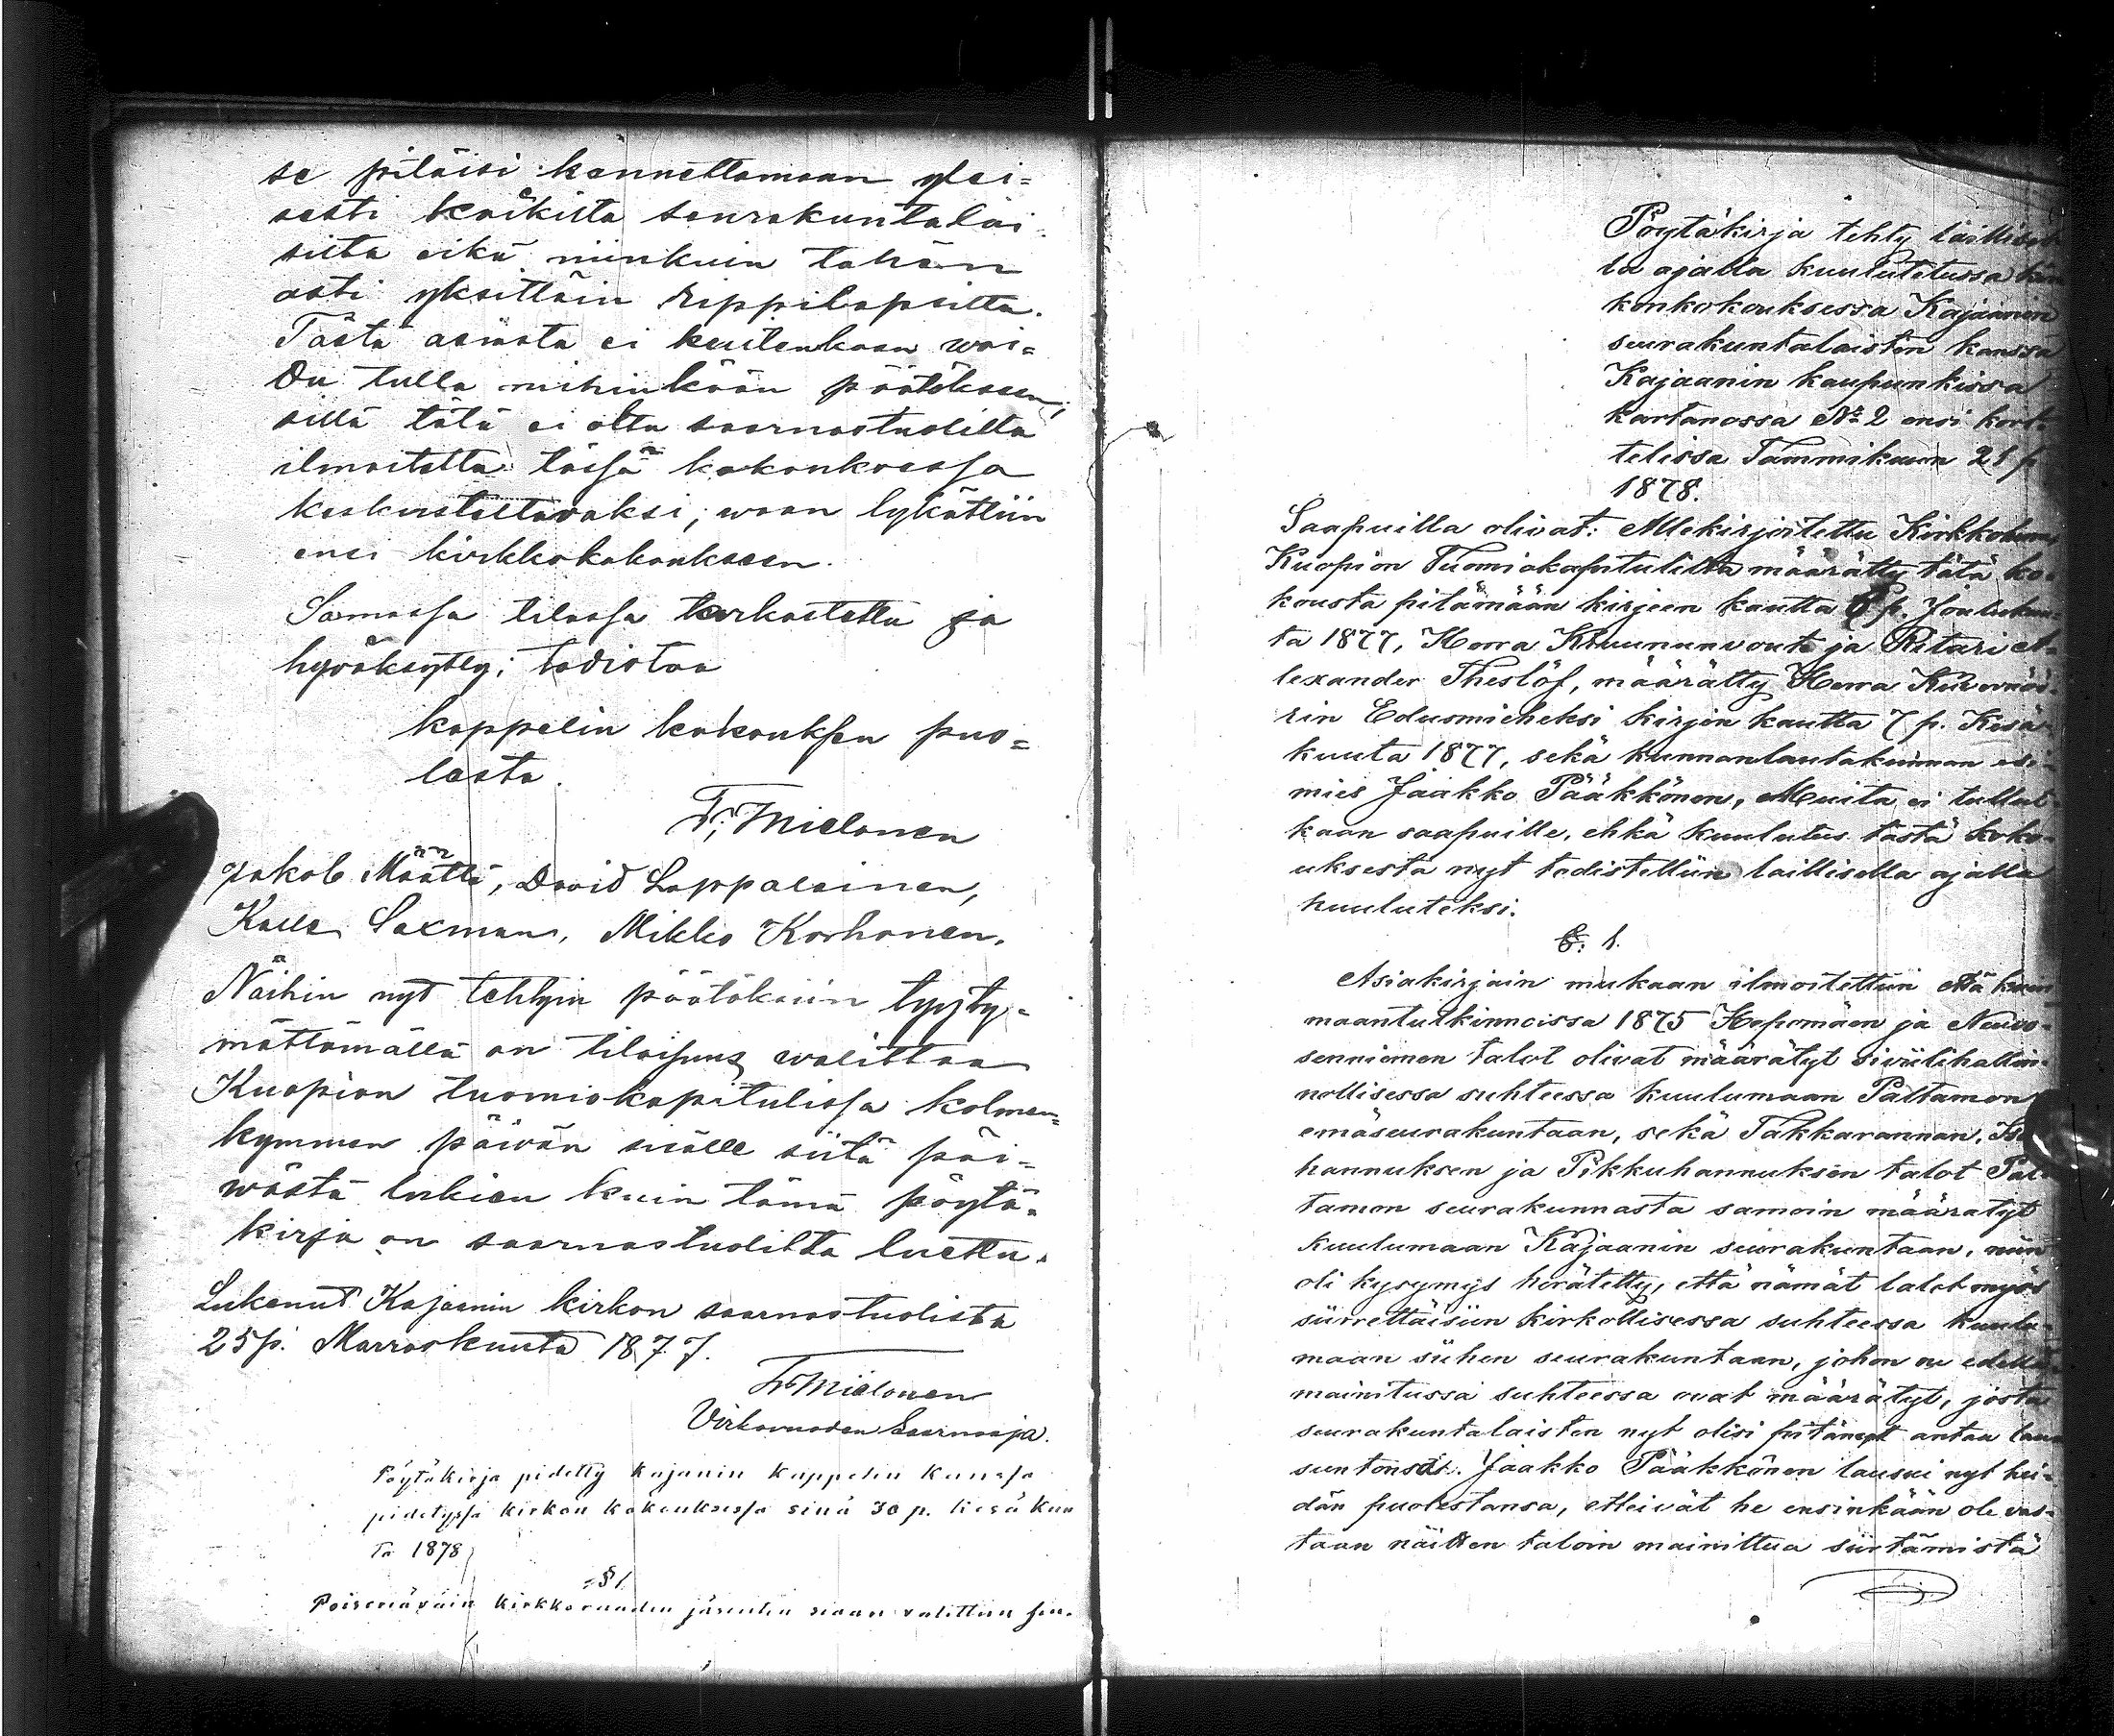 se pitäisi kannettamaan ylei=
sesti kaikilta seurakuntalai-
silta eikä niinkuin tähän
asti yksittäin rippilapsilta.
Tästä asiasta ei kuitenkaan woi=
du tulla mihinkään päätökseen;
sillä tätä ei oltu saarnastuolilta
ilmoitettu täsſä kokouksesſa
keskusteltavaksi, waan lykättiin
ensi kirkkokokoukseen.
Samasſa tilasſa tarkastettu ja
hyväksytty; todistaa
kappelin kokoukſen puo=
lesta.
Fr. Mielonen
Jakob Määttä, David Lappalainen,
Kalle Saxman, Mikko Korhonen.
Näihin nyt tehtyin päätöksiin tyyty-
mättömällä on tilaiſuus walittaa
Kuopion tuomiokapitulisſa kolmen=
kymmen päivän sisälle siitä päi=
wästä lukien kuin tämä pöytä=
kirja on saarnastuolilta luettu.
Lukenut Kajaanin kirkon saarnastuolista
25 p. Marraskuuta 1877.
Fr. Mielonen
Virkavuoden Saarnaaja.
Pöytäkirja pidetty Kajanin Kappelin Kansſa
pidetysſä kirkon kokouksesſa sinä 30 p. kesäkuu
ta 1878
§ 1
Poiseriäväin kirkkoraadin jäsenten siaan valittiin seu-
Pöytäkirja tehty laillisel
la ajalla kuulutetussa kir
konkokouksessa Kajaanin
seurakuntalaisten kanssa
Kajaanin kaupunkissa
kartanossa No 2 ensi kort-
telissa Tammikuun 21 p
1878.
Saapuilla olivat: Allekirjoitettu Kirkkoherra,
Kuopion Tuomiokapitulilta määrätty tätä ko-
kousta pitämään kirjeen kautta 6 p. Joulukuu-
ta 1877, Herra Kruununvouti ja Ritari A-
lexander Theslöf, määrätty Herra Kuvernöö-
rin Edusmieheksi kirjen kautta 7 p. Kesä-
kuuta 1877, sekä kunnanlautakunnan esi-
mies Jaakko Pääkkönen, Muita ei tullut-
kaan saapuille, ehkä kuulutus tästä koko-
uksesta nyt todistettiin laillisella ajalla
kuuluteksi.
§. 1.
Asiakirjain mukaan ilmoitettiin että kuin
maantutkinnoissa 1875 Hepomäen ja Neuvo-
senniemen talot olivat määrätyt siviilihallin-
nollisessa suhteessa kuulumaan Paltamon
emäseurakuntaan, sekä Takkarannan, Iso
hannuksen ja Pikkuhannuksen talot Pal-
tamon seurakunnasta samoin määrätyt
kuulumaan Kajaanin seurakuntaan, niin
oli kysymys herätetty, että nämät talot myös
siirrettäisiin kirkollisessa suhteessa kuulu-
maan siihen seurakuntaan, johon ne edellä
mainitussa suhteessa ovat määrätyt, josta
seurakuntalaisten nyt olisi pitänyt antaa lau
suntonsa. Jaakko Pääkkönen lausui nyt hei-
dän puolestansa, etteivät he ensinkään ole vas-
taan näitten taloin mainittua siirtämistä